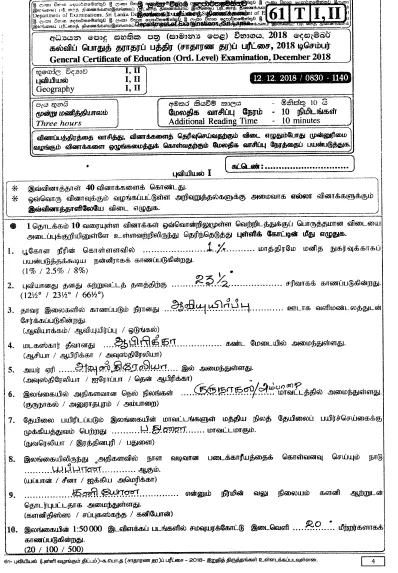 61 T I, II
අධ්‍යයන පොදු සහතික පත්‍ර (සාමාන්‍ය පෙළ) විභාගය, 2018 දෙසැම්බර්
கல்விப் பொதுத் தராதரப் பத்திர (சாதாரண தர)ப் பரீட்சை, 2018 டிசெம்பர்
General Certificate of Education (Ord. Level) Examination, December 2018
භූගෝල විද්‍යාව I, II
புவியியல் I, II
Geography I, II
12. 12. 2018 / 0830 - 1140
පැය තුනයි
மூன்று மணித்தியாலம்
Three hours
අමතර කියවීම් කාලය - මිනිත්තු 10 යි
மேலதிக வாசிப்பு நேரம் - 10 நிமிடங்கள்
Additional Reading Time - 10 minutes
வினாப்பத்திரத்தை வாசித்து, வினாக்களைத் தெரிவுசெய்வதற்கும் விடை எழுதும்போது முன்னுரிமை
வழங்கும் வினாக்களை ஒழுங்கமைத்துக் கொள்வதற்கும் மேலதிக வாசிப்பு நேரத்தைப் பயன்படுத்துக.
சுட்டெண் :
புவியியல் I
※ இவ்வினாத்தாள் 40 வினாக்களைக் கொண்டது.
※ ஒவ்வொரு வினாவுக்கும் வழங்கப்பட்டுள்ள அறிவுறுத்தல்களுக்கு அமைவாக எல்லா வினாக்களுக்கும்
இவ்வினாத்தாளிலேயே விடை எழுதுக.
● 1 தொடக்கம் 10 வரையுள்ள வினாக்கள் ஒவ்வொன்றிலுமுள்ள வெற்றிடத்துக்குப் பொருத்தமான விடையை
அடைப்புக்குறியினுள்ளே உள்ளவற்றிலிருந்து தெரிந்தெடுத்து புள்ளிக் கோட்டின் மீது எழுதுக.
1. பூகோள நீரின் கொள்ளளவில் 1% மாத்திரமே மனித நுகர்வுக்காகப்
பயன்படுத்தக்கூடிய நன்னீராகக் காணப்படுகின்றது.
(1% / 2.5% / 8%)
2. புவியானது தனது சுற்றுவட்டத் தளத்திற்கு 23½° சரிவாகக் காணப்படுகின்றது.
(12½° / 23½° / 66½°)
3. தாவர இலைகளில் காணப்படும் நீரானது ஆவியுயிர்ப்பு ஊடாக வளிமண்டலத்துடன்
சேர்க்கப்படுகின்றது.
(ஆவியாக்கம் / ஆவியுயிர்ப்பு / ஒடுங்கல்)
4. மடகஸ்கார் தீவானது ஆபிரிக்கா கண்ட மேடையில் அமைந்துள்ளது.
(ஆசியா / ஆபிரிக்கா / அவுஸ்திரேலியா)
5. அயர் ஏரி அவுஸ்திரேலியா இல் அமைந்துள்ளது.
(அவுஸ்திரேலியா / ஐரோப்பா / தென் ஆபிரிக்கா)
6. இலங்கையில் அதிகளவான நெல் நிலங்கள் குருநாகல்/அம்பாறை மாவட்டத்தில் அமைந்துள்ளது.
(குருநாகல் / அனுராதபுரம் / அம்பாறை)
7. தேயிலை பயிரிடப்படும் இலங்கையின் மாவட்டங்களுள் மத்திய நிலத் தேயிலைப் பயிர்ச்செய்கைக்கு
முக்கியத்துவம் பெற்றது பதுளை மாவட்டமாகும்.
(நுவரெலியா / இரத்தினபுரி / பதுளை)
8. இலங்கையிலிருந்து அதிகளவில் நாள வடிவான படைக்காரீயத்தைக் கொள்வனவு செய்யும் நாடு
யப்பான் ஆகும்.
(யப்பான் / சீனா / ஐக்கிய அமெரிக்கா)
9. கனியோன் என்னும் நீரின் வலு நிலையம் களனி ஆற்றுடன்
தொடர்புபட்டதாக அமைந்துள்ளது.
(களனிதிஸ்ஸ / சப்புகஸ்கந்த / கனியோன்)
10. இலங்கையின் 1:50000 இடவிளக்கப் படங்களில் சமவுயரக்கோட்டு இடைவெளி 20 மீற்றர்களாகக்
காணப்படுகின்றது.
(20 / 100 / 500)
4